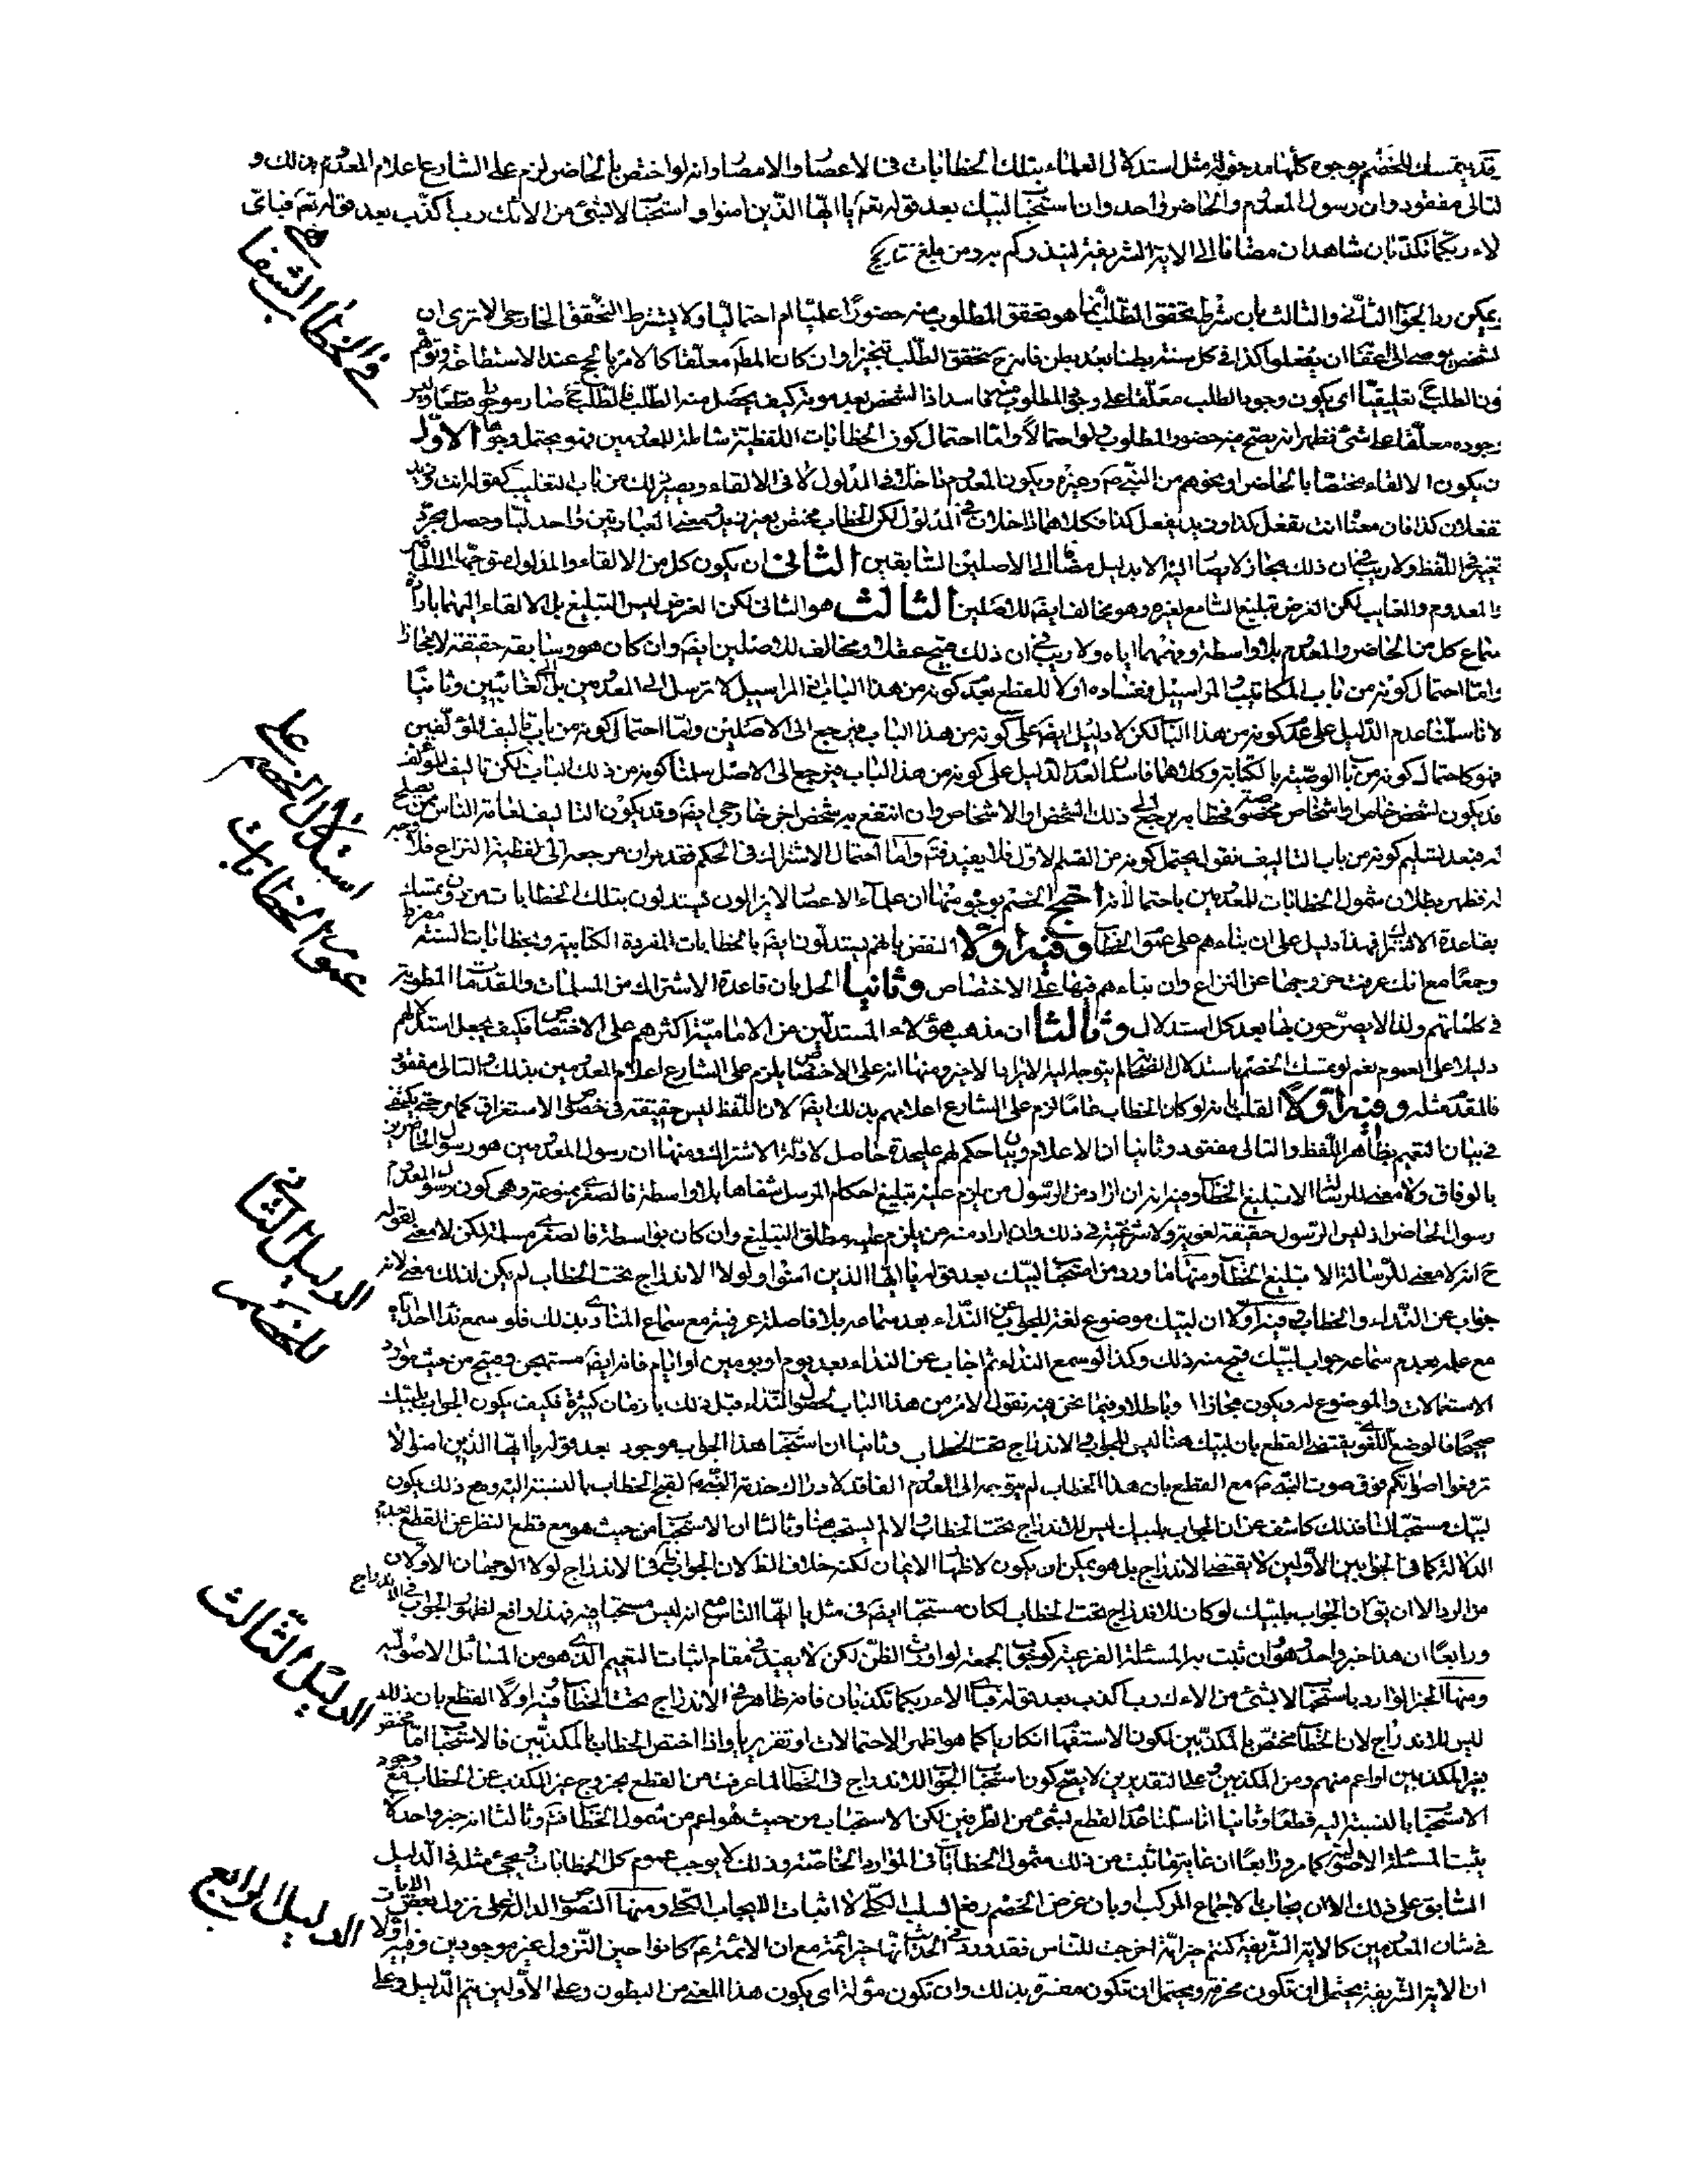 قد يتمسك للخصم بوجوه كلها مدخولة مثل استدلال العلماء بتلك الخطابات فى الاعصار والامصار وانه لو اختص بالحاضر لزم على الشارع اعلام المعدوم بذلك و
لتالى مفقود وان رسول المعدوم والحاضر واحد وان استحباب لبيك بعد قوله تعم يا ايها الذين امنوا و استحباب لا بشئ من الائك رب اكذب بعد قوله تعم فباى
لاء ربكما تكذبان شاهدان مضافا الى الاية الشريفة لينذركم به ومن بلغ
فى الخطاب الشفاهى
يمكن رد الجواب الثانى والثالث بان شرط تحقق الطلب انما هو تحقق المطلوب منه حضورا علميا ام احتماليا ولا يشترط التحقق الخارجى الا ترى ان
لشخص يوصى الى اعقابه ان يفعلوا كذا فى كل سنة بطنا بعد بطن فانه ح تحقق الطلب تنجيزا وان كان المط معلقا كالامر بالحج عند الاستطاعة وتوهم
ون الطلب ح تعليقيا اى يكون وجود الطلب معلقا على وجود المطلوب منه فاسد اذ الشخص بعد موته كيف يحصل منه الطلب فالطلب ح صار موجودا قطعا وليس
وجوده معلقا على شئ فظهر انه يصح منه حضور المطلوب ولو احتمالا واما احتمال كون الخطابات اللفظية شاملة للمعدومين فهو يحتمل وجوها الاول
ن يكون الالقاء مختصا بالحاضر او نحوهم من النبى ص وغيره ويكون المعدوم داخلا فى المدلول لا فى الالقاء ويصير ذلك من باب التغليب كقوله انت وزيد
تفعلان كذا فان معناه انت تفعل كذا وزيد يفعل كذا فكلاهما داخلان فى المدلول لكن الخطاب مختص بغير زيد بل بمعنى العبارتين واحد لبا وحصل مجرد
تغيير فى اللفظ ولا ريب فى ان ذلك مجاز لا يصار اليه الا بدليل مضافا الى الاصلين السابقين الثانى ان يكون كل من الالقاء والمدلول متوجها الى الحاضر
والمعدوم والغايب لكن الغرض تبليغ السامع لغيره وهو مخالف ايضا للاصلين الثالث هو الثانى لكن الغرض ليس التبليغ بل الالقاء اليهما بارادة
سماع كل من الحاضر والمعدوم بلا واسطة وفهمهما اياه ولا ريب فى ان ذلك قبيح عقلا ومخالف للاصلين ايضا وان كان هو وسابقه حقيقة لا مجازا
واما احتمال كونه من باب المكاتيب والمراسيل ففساده اولا للقطع بعدم كونه من هذا الباب فى المراسيل لا ترسل الى المعدومين بل الى الغائبين وثانيا
لانا سلمنا عدم الدليل على عدم كونه من هذا الباب لكن لا دليل ايضا على كونه من هذا الباب فيرجع الى الاصلين واما احتمال كونه من باب تاليف المؤلفين
فهو كاحتمال كونه من باب الوصية بالكتابة وكلاهما فاسدان لعدم الدليل على كونه من هذا الباب فيرجع الى الاصل سلمنا كونه من ذلك الباب لكن تاليف المؤلف
استدلال الخصم على عموم الخطابات
قد يكون لشخص خاص او اشخاص مخصوصة فخطابه يرجع الى ذلك الشخص او الاشخاص وان انتفع به شخص اخر خارجى ايضا وقد يكون التاليف لعامة الناس ممن يصلح
له فبعد تسليم كونه من باب التاليف نقول يحتمل كونه من القسم الاول فلا يفيد فتم واما احتمال الاشتراك فى الحكم فقد مر ان مرجعه الى لفظية النزاع فلا وجه
له فظهر بطلان شمول الخطابات للمعدومين باحتمالاته احتج الخصم بوجوه منها ان علماء الاعصار لا يزالون يستدلون بتلك الخطابات من دون تمسك
بقاعدة الاشتراك فهذا دليل على ان بناءهم على عموم الخطاب وفيه اولا النقض بانهم يستدلون ايضا بالخطابات المفردة الكتابية وبخطابات السنة مفردا
وجمعا مع انك عرفت خروجها عن النزاع وان بناءهم فيها على الاختصاص وثانيا الحل بان قاعدة الاشتراك من المسلمات والمقدمات المطوية
فى كلماتهم ولذا لا يصرحون بها بعد كل استدلال وثالثا ان مذهب هؤلاء المستدلين من الامامية اكثرهم على الاختصاص فكيف يجعل استدلالهم
دليلا على العموم نعم لو تمسك الخصم باستدلال الصحابة لم يتوجه اليه الايراد الاخير ومنها انه على الاختصاص يلزم على الشارع اعلام المعدومين بذلك والتالى مفقود
فالمقدم مثله وفيه اولا القلب بانه لو كان الخطاب عاما لزم على الشارع اعلامهم بذلك ايضا لان اللفظ ليس حقيقة فى خصوص الاستغراق كما مر حتى يكتفى
فى بيان التعميم بظاهر اللفظ والتالى مفقود وثانيا ان الاعلام وبيان حكمهم عليحدة حاصل لادلة الاشتراك ومنها ان رسول المعدومين هو رسول الحاضرين
بالوفاق ولا معنى للرسالة الا تبليغ الخطاب وفيه انه ان اراد من الرسول من يلزم عليه تبليغ احكام المرسل شفاها بلا واسطة فالصغرى ممنوعة وهى كون رسول المعدوم
الدليل الثانى للخصم
رسول الحاضر اذ ليس الرسول حقيقة لغوية ولا شرعية فى ذلك وان اراد منه من يلزم عليه مطلق التبليغ وان كان بواسطة فالصغرى مسلمة لكن لا معنى لقوله
ح انه لا معنى للرسالة الا تبليغ الخطاب ومنها ما ورد من استحباب لبيك بعد قوله يا ايها الذين امنوا ولولا الاندراج تحت الخطاب لم يكن لذلك معنى لانه
جواب عن النداء والخطاب وفيه اولا ان لبيك موضوع لغة للجواب عن النداء بعد سماعه بلا فاصلة عرفية مع سماع المنادى بذلك فلو سمع نداء احد اياه
مع علمه بعدم سماعه جواب لبيك قبح منه ذلك وكذا لو سمع النداء ثم اجاب عن النداء بعد يوم او يومين او ايام فانه ايضا مستهجن وقبيح من حيث موارد
الاستعمالات والموضوع له ويكون مجازا او باطلا وفيما نحن فيه نقول الامر من هذا الباب لحصول النداء قبل ذلك بازمان كثيرة فكيف يكون الجواب بلبيك
صحيحا فالوضع اللغوى يقتضى القطع بان لبيك هنا ليس للجواب والاندراج تحت الخطاب وثانيا ان استحباب هذا الجواب موجود بعد قوله يا ايها الذين امنوا لا
ترفعوا اصواتكم فوق صوت النبى ص مع القطع بان هذا الخطاب لم يتوجه الى المعدوم الفاقد لادراك خدمة النبى ص لقبح الخطاب بالنسبة اليه ومع ذلك يكون
لبيك مستحبا لنا فذلك كاشف عن ان الجواب بلبيك ليس للاندراج تحت الخطاب والا لم يستحب هنا وثالثا ان الاستحباب من حيث هو مع قطع النظر عن القطع بعدم
الدلالة كما فى الجوابين الاولين لا يقتضى الاندراج بل هو يمكن ان يكون لاظهار الايمان لكنه خلاف الظ لان الجواب ظ فى الاندراج لولا الوجهان الاولان
من الرد الا ان يق ان الجواب بلبيك لو كان للاندراج تحت الخطاب لكان مستحبا ايضا فى مثل يا ايها الناس مع انه ليس مستحبا فيه فهذا دافع لظهور الجواب فى الاندراج
الدليل الثالث
ورابعا ان هذا خبر واحد وهو ان ثبت به المسئلة الفرعية كوجوب الجمعة لو اورث الظن لكن لا يفيد فى مقام اثبات التعميم الذى هو من المسائل الاصولية
ومنها الخبر الوارد باستحباب لا بشئ من الاءك رب اكذب بعد قوله فباى الاء ربكما تكذبان فانه ظاهر فى الاندراج تحت الخطاب وفيه اولا القطع بان ذلك
ليس للاندراج لان الخطاب مختص بالمكذبين لكون الاستفهام انكاريا كما هو اظهر الاحتمالات او تقريريا واذا اختص الخطاب بالمكذبين فالاستحباب اما مختص
بغير المكذبين او اعم منهم ومن المكذبين وعلى التقديرين لا يصح كون استحباب الجواب للاندراج فى الخطاب لما عرفت من القطع بخروج غير المكذب عن الخطاب مع وجود
الاستحباب بالنسبة اليه قطعا وثانيا انا سلمنا عدم القطع بشئ من الطرفين لكن الاستحباب من حيث هو اعم من شمول الخطاب فتم وثالثا انه خبر واحد لا
يثبت المسئلة الاصولية كما مر ورابعا ان غاية ما ثبت من ذلك شمول الخطابات فى الموارد الخاصة وذلك لا يوجب عموم كل الخطابات ويجئ مثله فى الدليل
الدليل الرابع
السابق على ذلك الا ان يجاب بالاجماع المركب او بان غرض الخصم رفع السلب الكلى لا اثبات الايجاب الكلى ومنها النصوص الدالة على نزول بعض الايات
فى شان المعدومين كالاية الشريفة كنتم خير امة اخرجت للناس فقد ورد فى الحديث انها خير ائمة مع ان الائمة ع كانوا حين النزول غير موجودين وفيه اولا
ان الاية الشريفة يحتمل ان تكون محرفة ويحتمل ان تكون مفسرة بذلك وان تكون مؤلة اى يكون هذا المعنى من البطون وعلى الاولين يتم الدليل وعلى